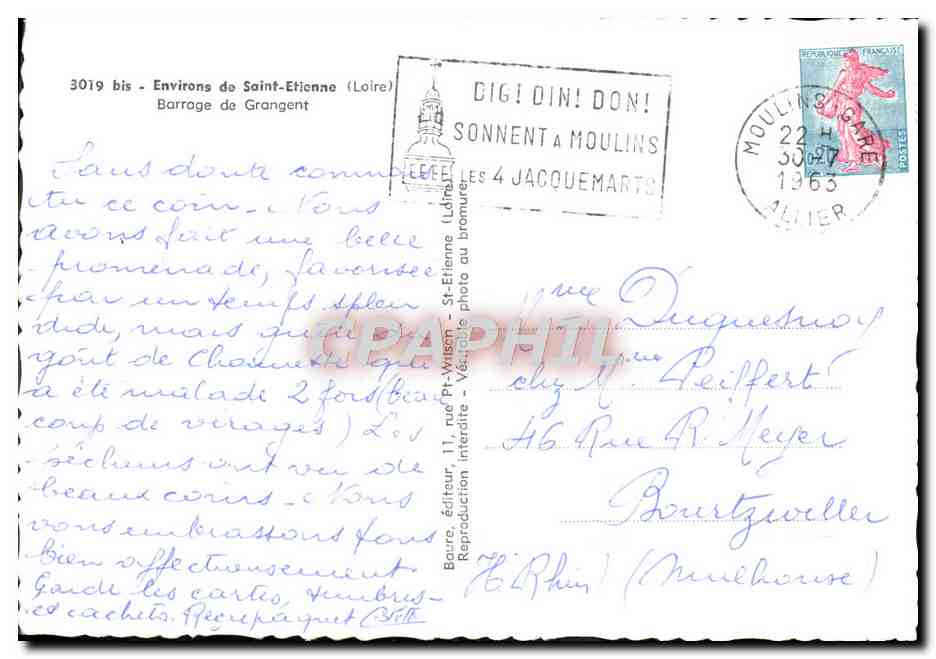 3019 bis - Environs de Saint-Etienne (Loire)
Barrage de Grangent
DIG! DIN! DON!
SONNENT A MOULINS
LES 4 JACQUEMARTS
REPUBLIQUE FRANÇAISE
POSTES
MOULINS GARE
22 H
30-7
1963
ALLIER
Sans doute connais
tu ce coin - Nous
avons fait une belle
promenade, favorisée
par un temps splen
dide, mais guère du
goût de Choun qui
a été malade 2 fois (beau
coup de virages) Les
pêcheurs ont vu de
beaux coins - Nous
vous embrassons tous
bien affectueusement
Garde les cartes, timbres -
et cachets. Reçu paquet
Baure, éditeur, 11, rue Pt-Wilson - St-Etienne (Loire)
Reproduction interdite - Véritable photo au bromure
Mme Duquesnoy
chez Mme Peiffert
46 Rue R. Meyer
Bourtzwiller
Ht Rhin (Mulhouse)
CPAPHIL